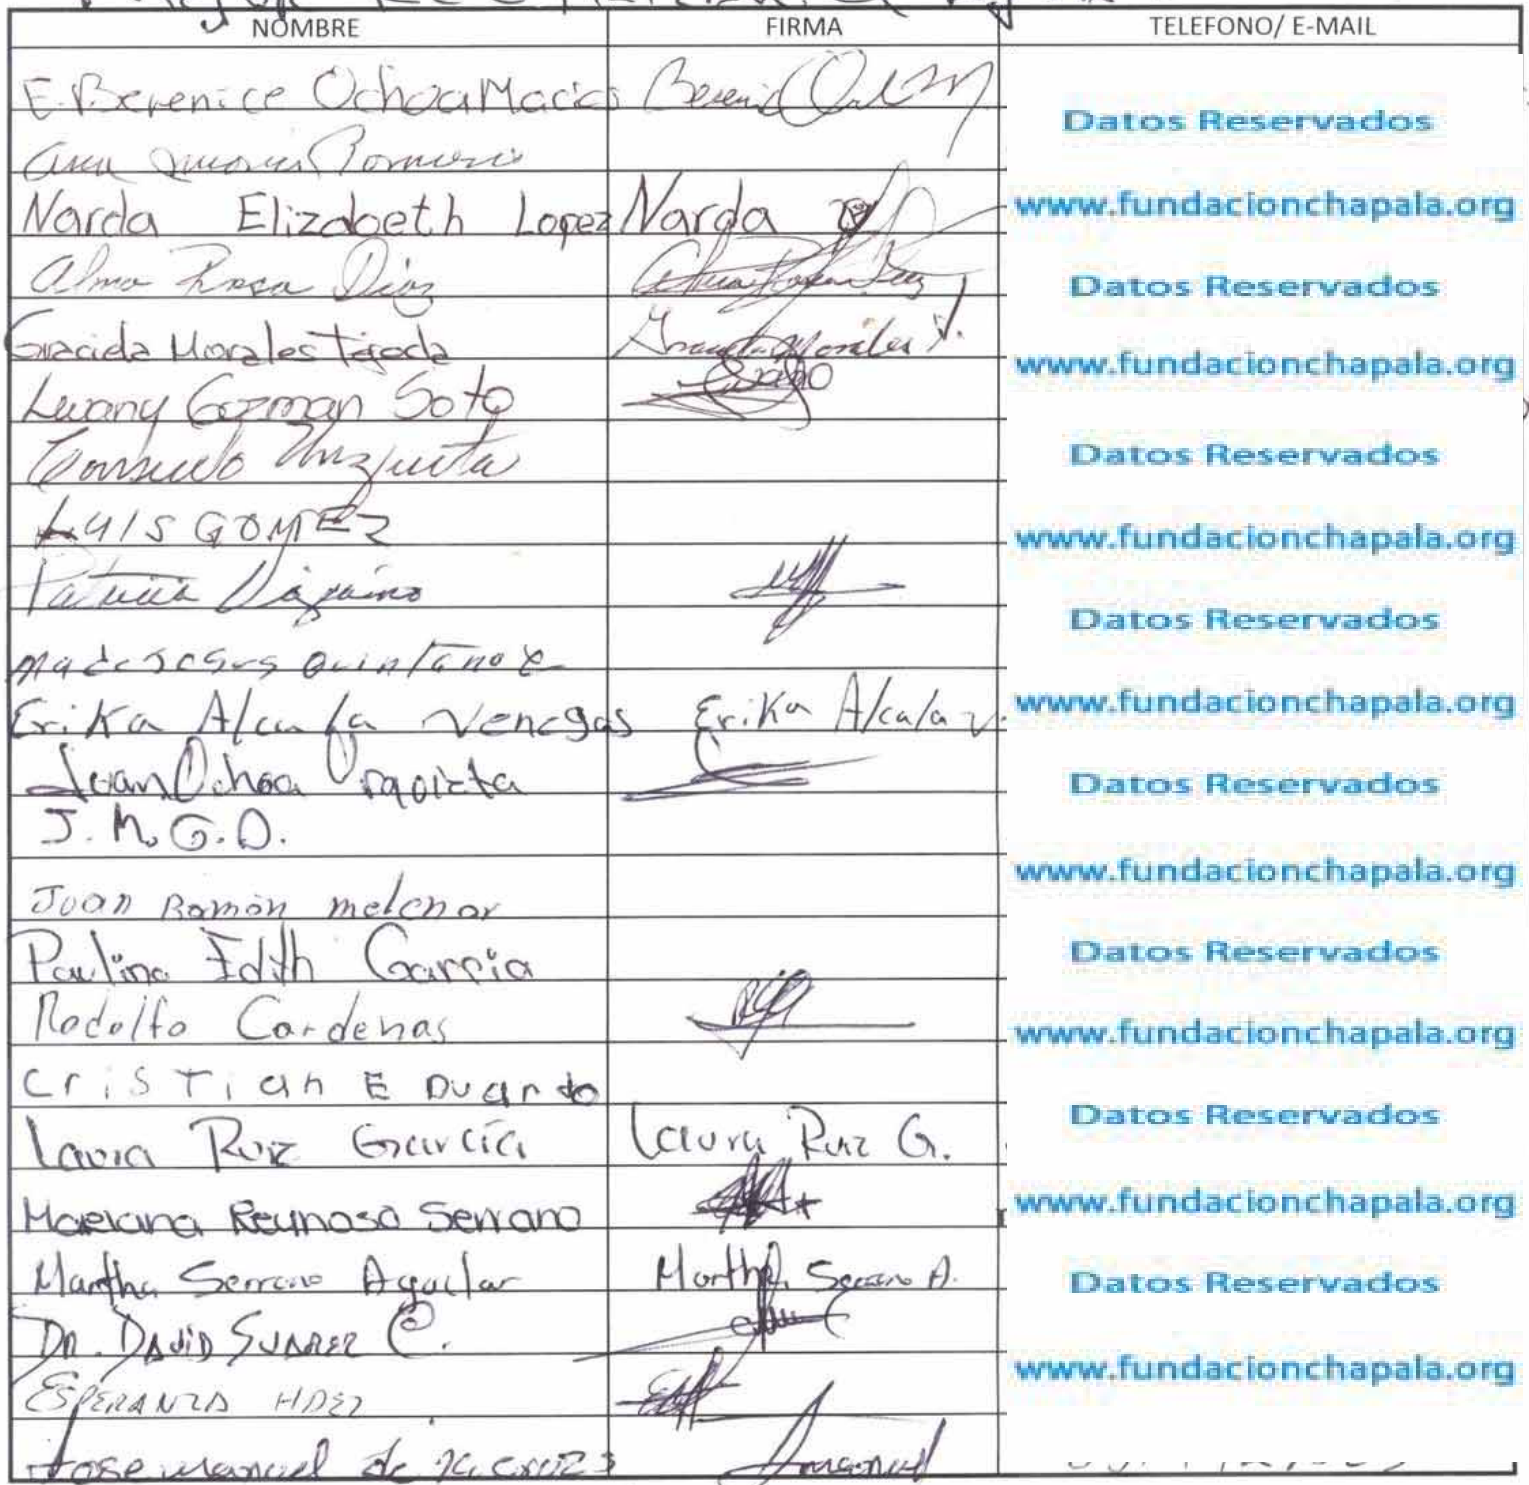 NOMBRE FIRMA TELEFONO/ E-MAIL
E. Berenice Ochoa Macias
Datos Reservados
Ana Romero
Narda Elizabeth Lopez Narda www.fundacionchapala.org
Alma Rosa Diaz Datos Reservados
Gracida Morales Tejeda Morales T.
www.fundacionchapala.org
Gozman Soto
Consuelo Datos Reservados
LUIS GOMEZ www.fundacionchapala.org
Patricia
Datos Reservados
Ma de Jesus Quintano
Erika Alcala Venegas Erika Alcala V. www.fundacionchapala.org
Juan Ochoa Datos Reservados
J. M. G. D.
www.fundacionchapala.org
Joan Ramón melchor
Paulina Edith Garcia Datos Reservados
Rodolfo Cardenas www.fundacionchapala.org
Cristian EDuardo
Datos Reservados
Laura Ruiz García Laura Ruiz G.
Mariana Reynoso Serrano www.fundacionchapala.org
Martha Serrano Aguilar Martha Serrano A. Datos Reservados
DR. DAVID SUAREZ C.
www.fundacionchapala.org
ESPERANZA HDEZ
Jose manuel de la cruz